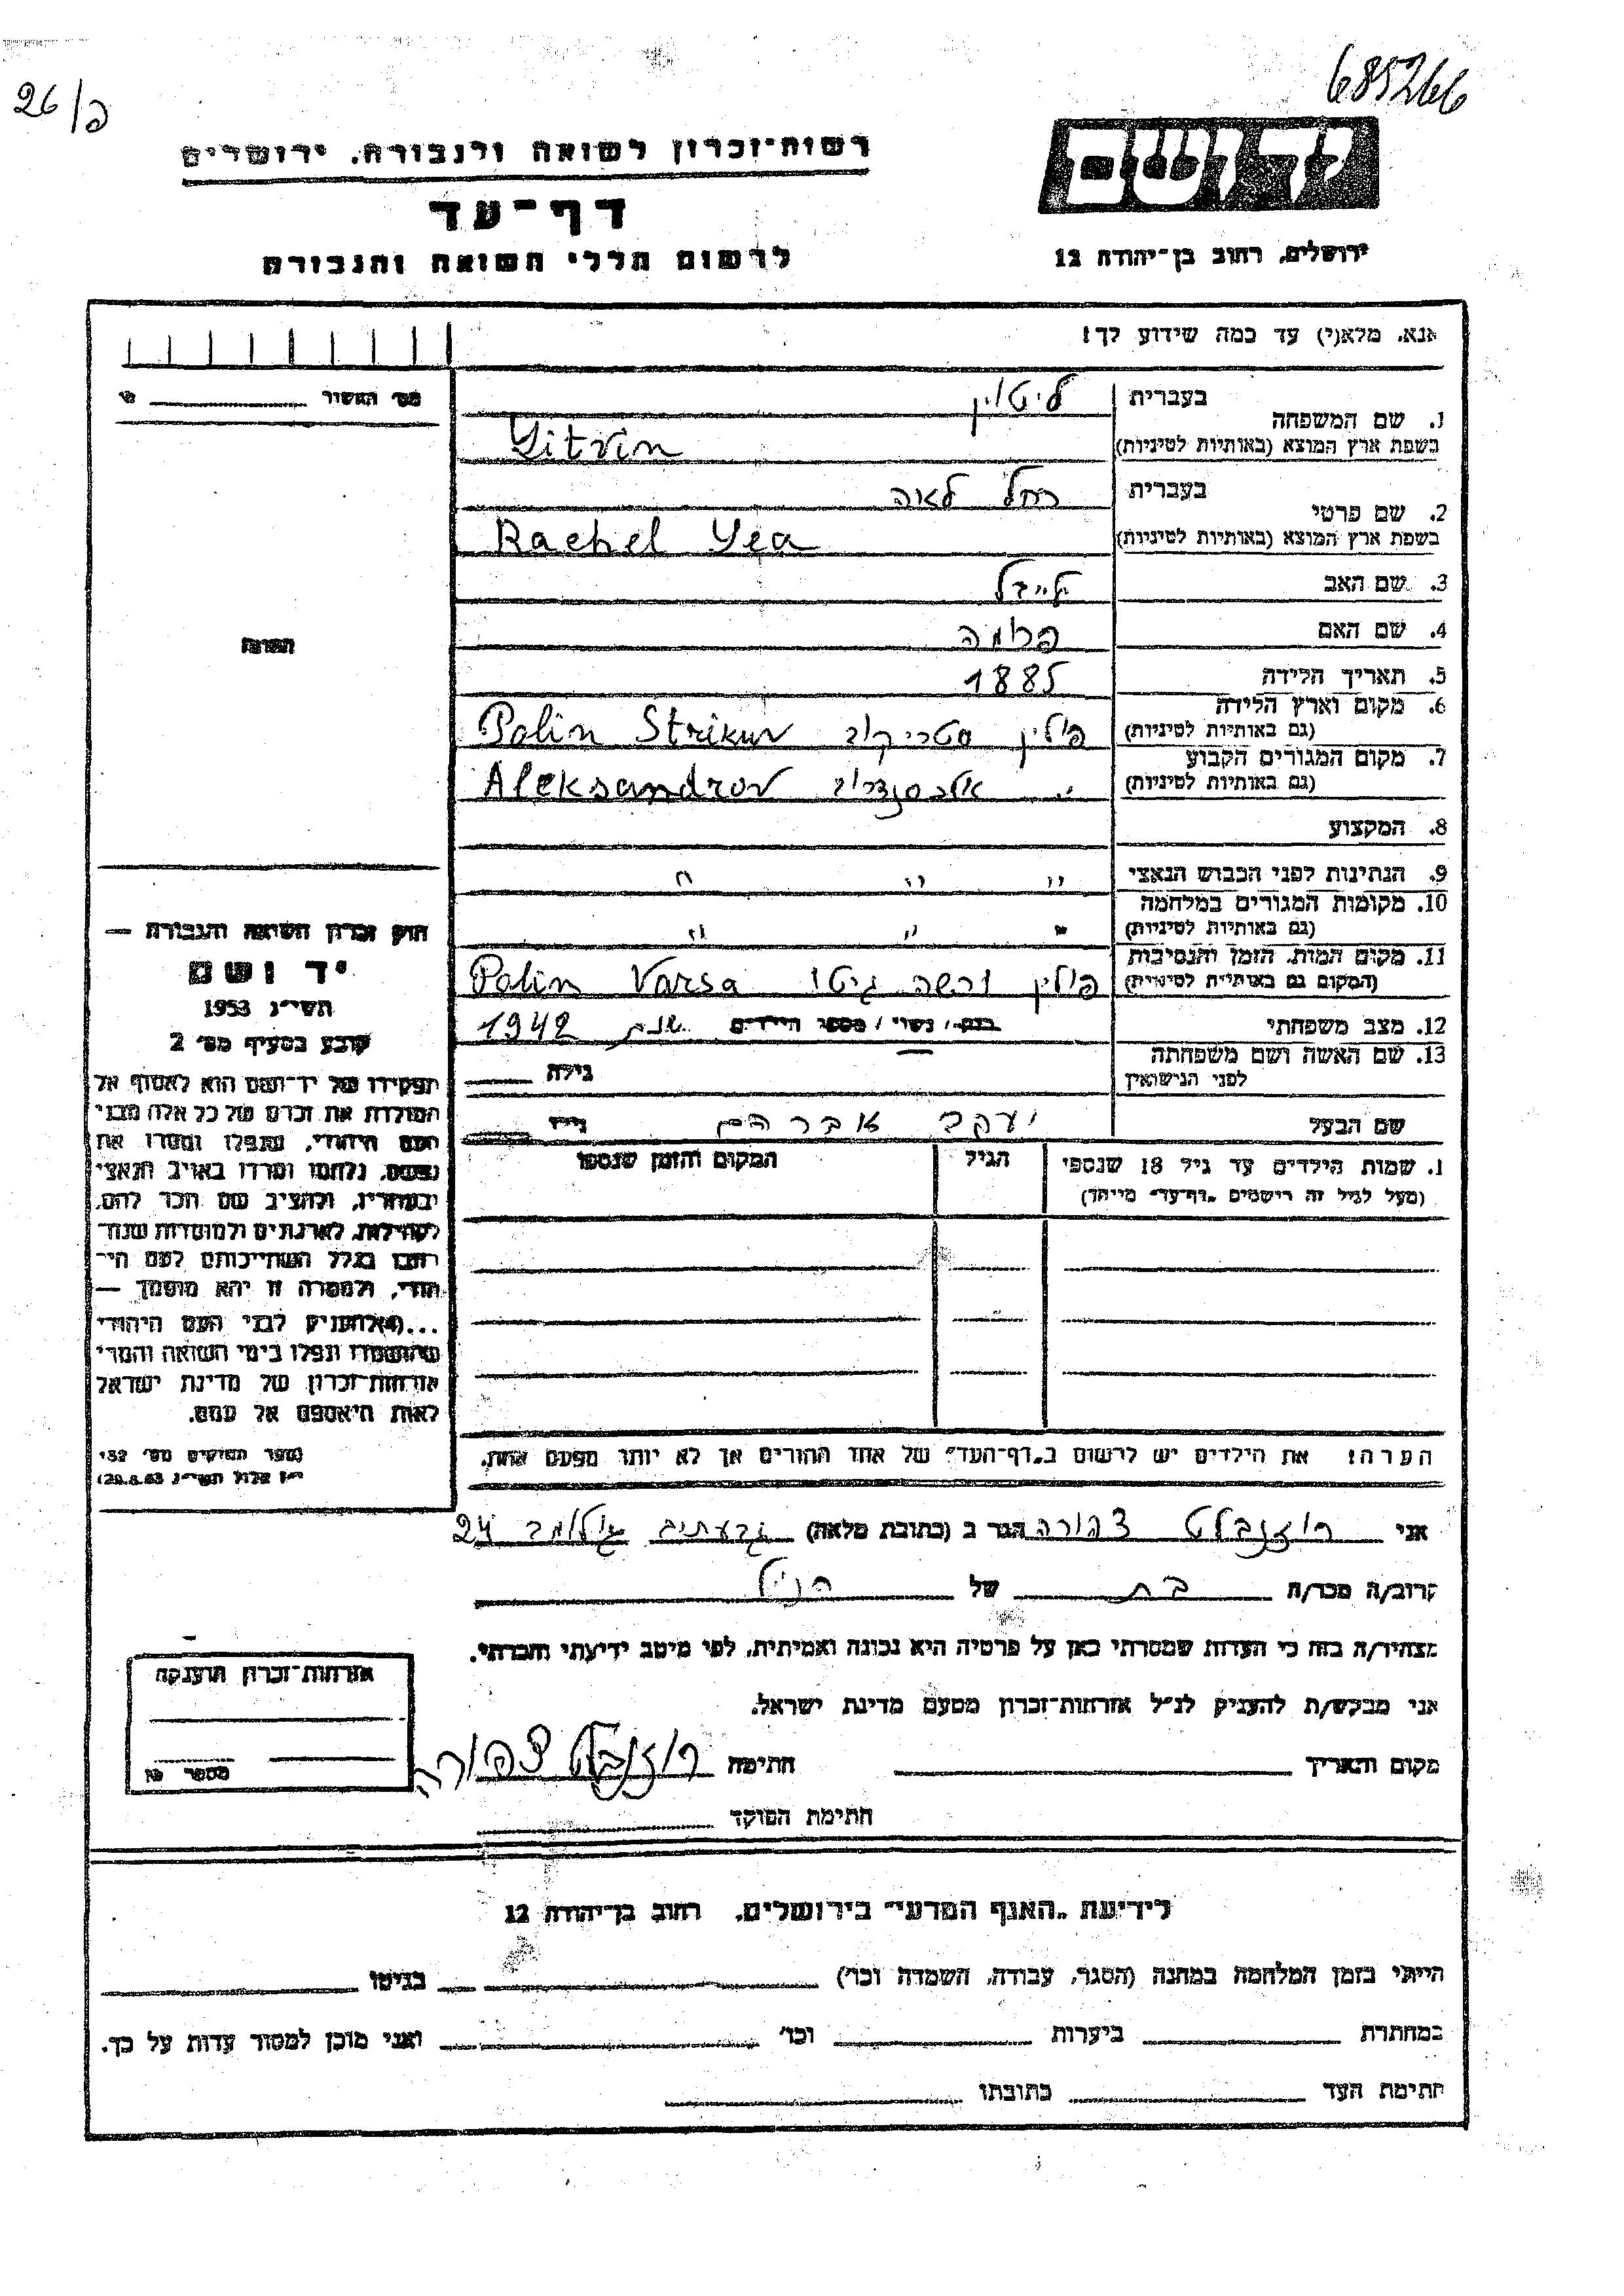 685266
26/פ
רשות־זכרון לשואה ולגבורה. ירושלים
יד ושם
דף־עד
לרשום חללי השואה והגבורה
ירושלים, רחוב בן־יהודה 12
אנא, מלא(י) עד כמה שידוע לך!
1. שם המשפחה
בעברית ליטוין
בשפת ארץ המוצא (באותיות לטיניות) Litvin
2. שם פרטי
בעברית רחל לאה
בשפת ארץ המוצא (באותיות לטיניות) Rachel Lea
3. שם האב
4. שם האם פרומה
5. תאריך הלידה 1885
6. מקום וארץ הלידה
(גם באותיות לטיניות) פולין סטריקוב Polin Strikuv
7. מקום המגורים הקבוע
(גם באותיות לטיניות) " אלכסנדרוב Aleksandrov
8. המקצוע
9. הנתינות לפני הכבוש הנאצי " " "
10. מקומות המגורים במלחמה
(גם באותיות לטיניות) " " "
11. מקום המות, הזמן והנסיבות
(המקום גם באותיות לטיניות) פולין ורשה גיטו Polin Varsa
12. מצב משפחתי רווק / נשוי / מספר הילדים שנת 1942
13. שם האשה ושם משפחתה
לפני הנישואין גילה
שם הבעל יעקב אברהם גילו
1. שמות הילדים עד גיל 18 שנספו
(מעל לגיל זה רישמים „דף־עד" מייחד)
הגיל
המקום והזמן שנספו
הערה! את הילדים יש לרשום ב„דף־העד" של אחד ההורים אך לא יותר מפעם אחת.
מס' האשור
התמונה
חוק זכרון השואה והגבורה —
יד ושם
תשי"ג 1953
קובע בסעיף מס' 2
תפקידו של יד־ושם הוא לאסוף אל
המולדת את זכרם של כל אלה מבני
העם היהודי, שנפלו ומסרו את
נפשם, נלחמו ומרדו באויב הנאצי
ובעוזריו, ולהציב שם וזכר להם,
לקהילות, לארגונים ולמוסדות שנח־
רבו בגלל השתייכותם לעם הי־
הודי, ולמטרה זו יהא מוסמך —
...(4)להעניק לבני העם היהודי
שהושמדו ונפלו בימי השואה והמרי
אזרחות־זכרון של מדינת ישראל
לאות היאספם אל עמם.
(ספר החוקים מס' 132
י"ז אלול תשי"ג 28.8.53)
אני רוזנבלט צפורה הגר ב (כתובת מלאה) גבעתיים גולומב 24
קרוב/ה מכר/ה בת של הנ"ל
מצהיר/ה בזה כי העדות שמסרתי כאן על פרטיה היא נכונה ואמיתית, לפי מיטב ידיעתי והכרתי.
אני מבקש/ת להעניק לנ"ל אזרחות־זכרון מטעם מדינת ישראל.
מקום ותאריך חתימה רוזנבלט צפורה
חתימת הפוקד
אזרחות־זכרון הוענקה
מספר
לידיעת „האגף המדעי" בירושלים, רחוב בן־יהודה 12
הייתי בזמן המלחמה במחנה (הסגר, עבודה, השמדה וכו') בגיטו
במחתרת ביערות וכו' ואני מוכן למסור עדות על כך.
חתימת העד כתובתו